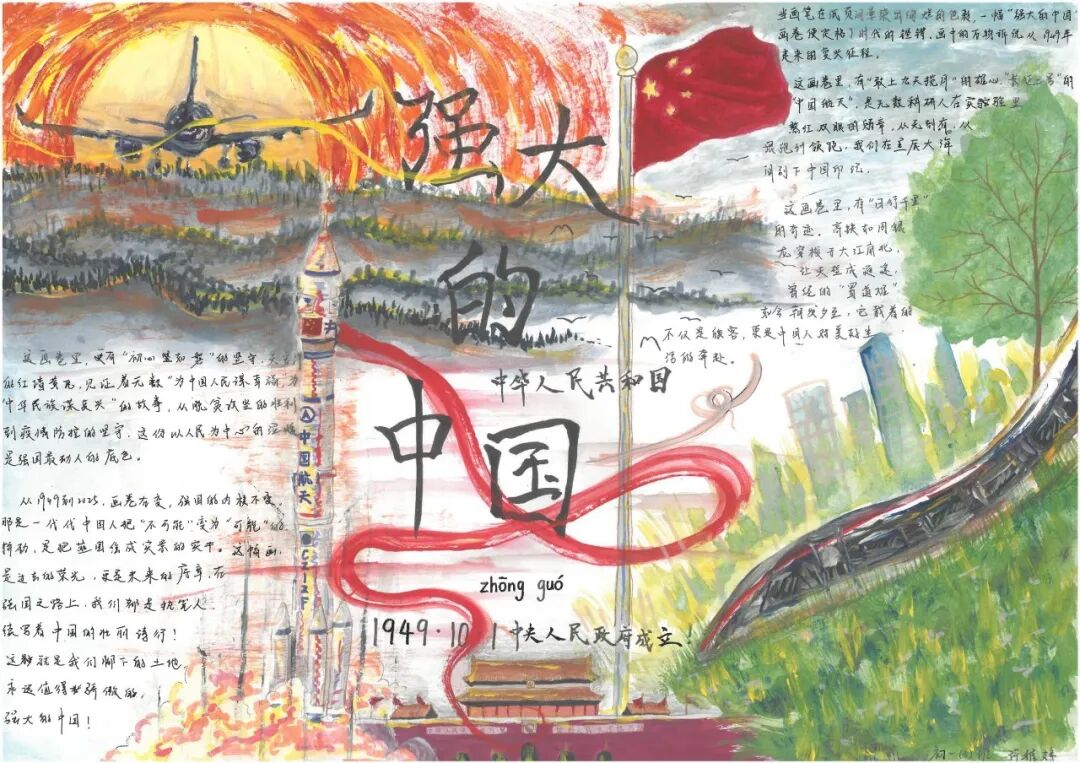 强大
的
中国
中华人民共和国
zhōng guó
1949·10 1 中央人民政府成立!
中国航天
CZ-2F
当画笔在纸页间晕染出绚烂的色彩,一幅"强大的中国"
画卷便定格了时代的铿锵。画中的万物诉说从1949年
走来的复兴征程。
这画卷里,有"敢上九天揽月"的雄心,"长征二号"的
"中国航天",是无数科研人在实验室里
熬红双眼的勋章,从无到有,从
跟跑到领跑,我们在星辰大海
间刻下中国印记。
这画卷里,有"日行千里"
的奇迹。高铁如同银
龙穿梭于大江南北,
让天堑成通途,
曾经的"蜀道难"
如今朝发夕至,它载着的
不仅是旅客,更是中国人对美好生
活的奔赴。
这画卷里,更有"初心坚如磐"的坚守,天安门
的红墙黄瓦,见证着无数"为中国人民谋幸福,为
中华民族谋复兴"的故事,从脱贫攻坚的胜利
到疫情防控的坚守,这份以人民为中心的温暖
是强国最动人的底色。
从1949到2025,画卷在变,强国的内核不变。
那是一代代中国人把"不可能"变为"可能"的
拼劲,是把蓝图绘成实景的实干。这幅画,
是过去的荣光,更是未来的序章,在
强国之路上,我们都是执笔人
续写着中国的壮丽诗行!
这就是我们脚下的土地,
永远值得骄傲的,
强大的中国!
初一